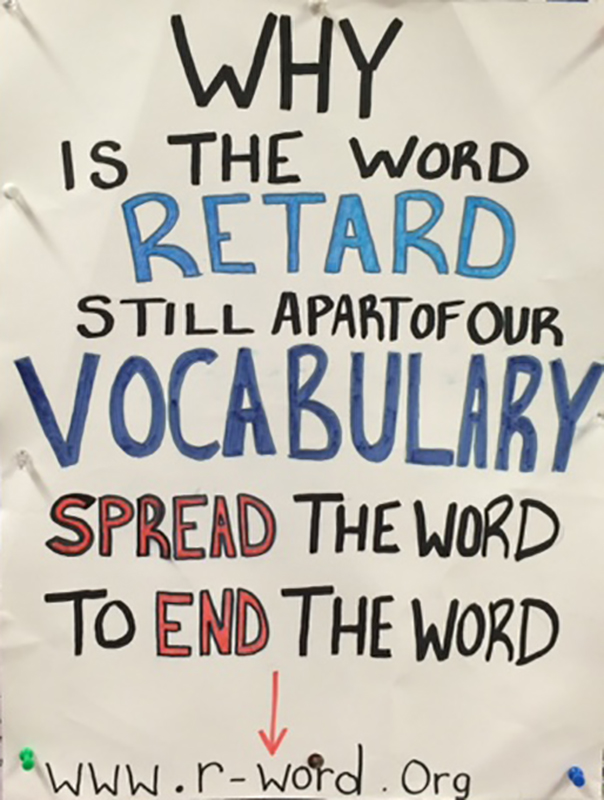 WHY
IS THE WORD
RETARD
STILL APART OF OUR
VOCABULARY
SPREAD THE WORD
TO END THE WORD
www.r-word.Org